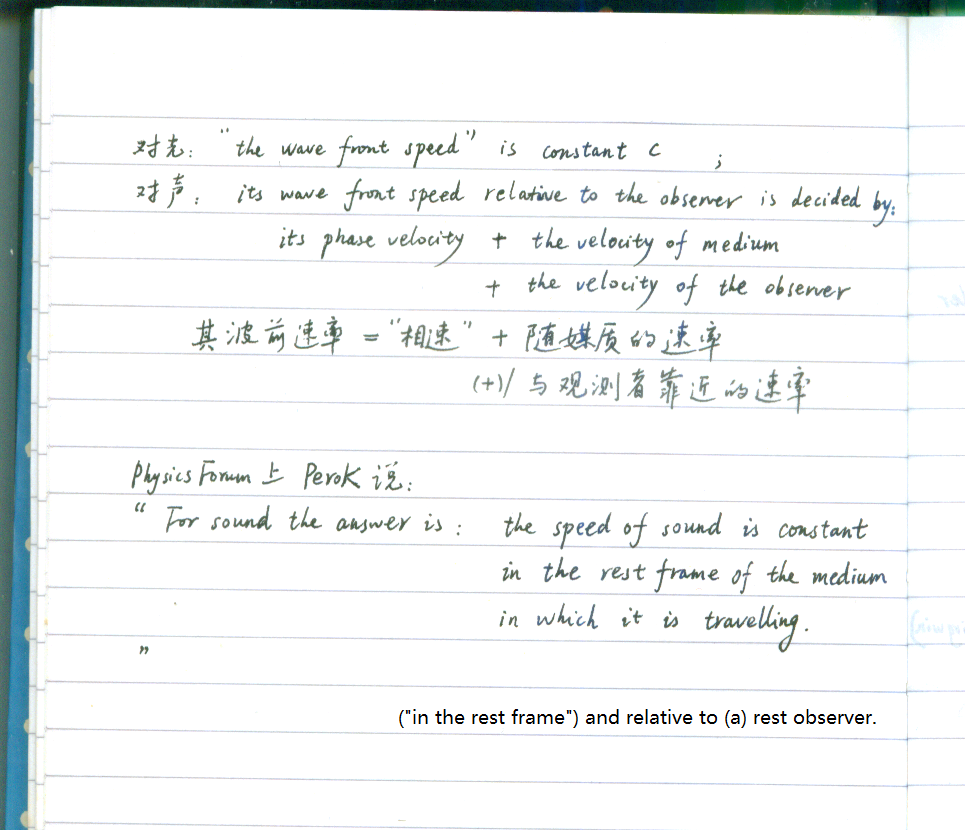 对光: "the wave front speed" is constant c ;
对声: its wave front speed relative to the observer is decided by:
its phase velocity + the velocity of medium
+ the velocity of the observer
其波前速率 = "相速" + 随媒质的速率
(+)/ 与观测者靠近的速率
Physics Forum 上 PeroK 说:
" For sound the answer is: the speed of sound is constant
in the rest frame of the medium
in which it is travelling.
"
("in the rest frame") and relative to (a) rest observer.